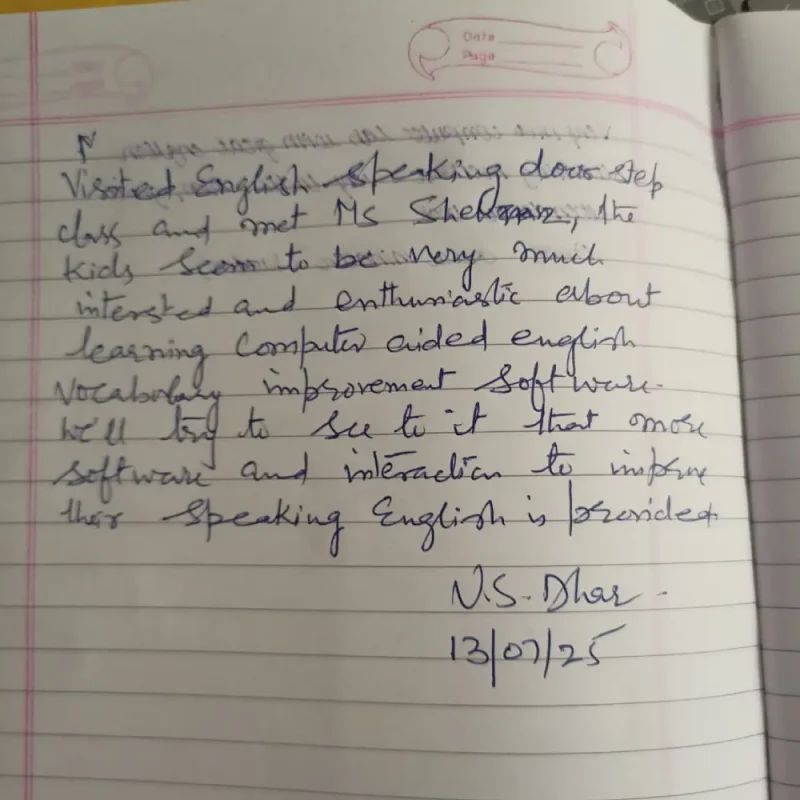 Data
Page
Visited English speaking door step
class and met Ms, the
kids seem to be very much
intersted and enthuriastic about
learning Computer aided english
vocabulary improvement software.
We'll try to see to it that more
software and interaction to improve
their speaking English is provided
N.S. Dhar.
13/07/25